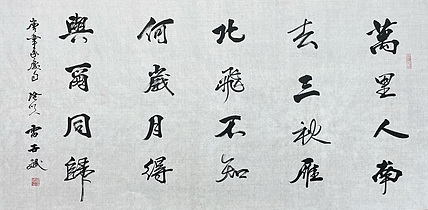 萬里人南
去三秋雁
北飛不知
何歲月得
與爾同歸
唐韋承慶句